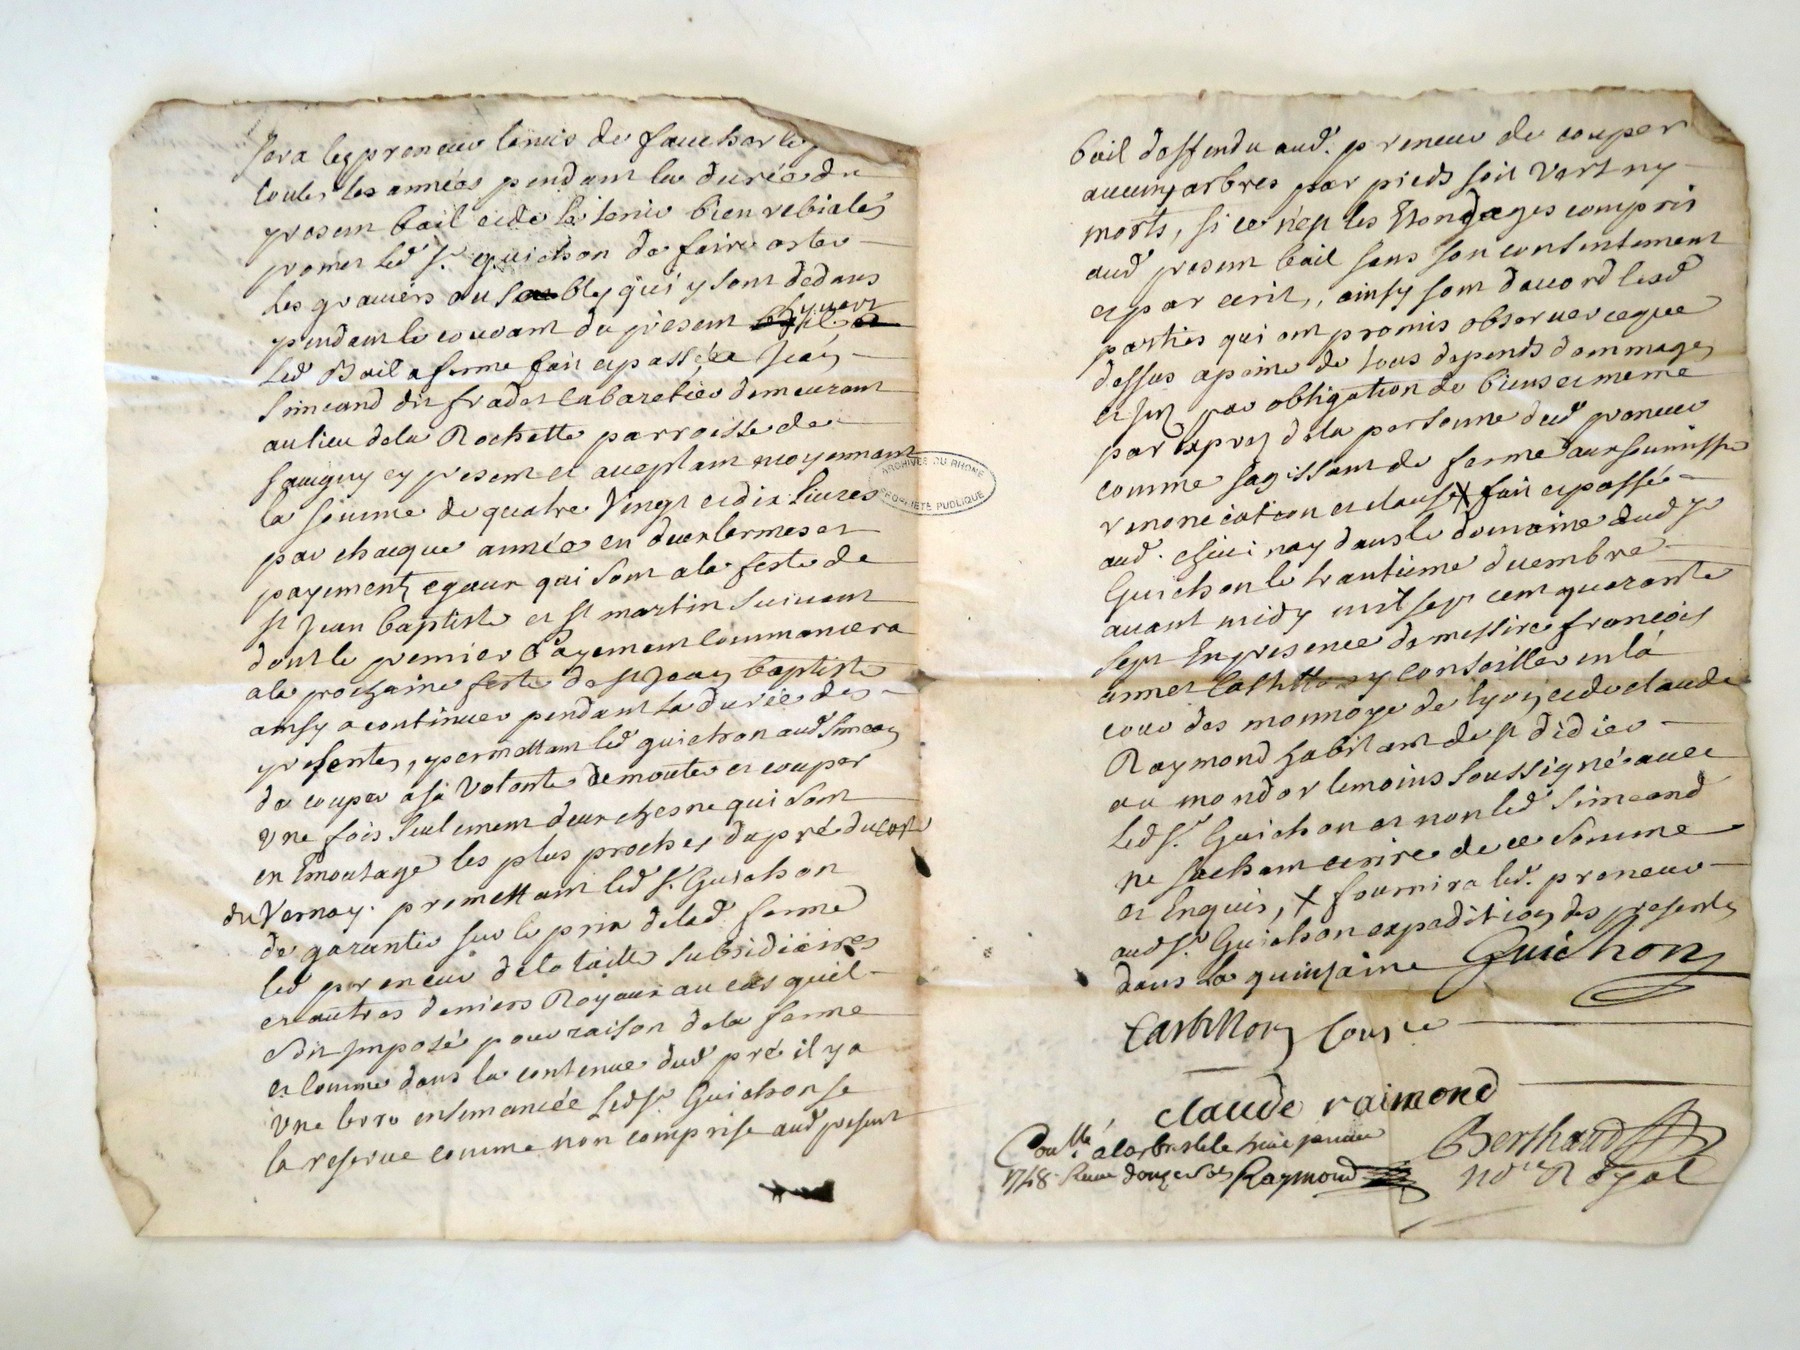 sera led preneur tenu de faucher led
toutes les années pendant la durée du
present bail et de le tenir bien rebialé
promet led Sr. guichon de faire oster
les graviers ou sably qui y sont dedans
pendant le courant du present hyvert
Led Bail a ferme fait et passé, a Jean
Simeand dit fradet Cabaretier demeurant
au lieu dela Rochette parroisse de
Savigny cy present et aceptant moyennant
la somme de quatre Vingt et dix livres
par chacque année en deux termes et
payements egaux qui sont a la feste de
st Jean baptiste et st martin suivant
dont le premier Payement Commancera
ala prochaine feste de st Jean baptiste
ainsy a continuer pendant la durée des
presentes, permettant led guichon aud Simean
de couper a sa Volonté démonter et couper
une fois seulement deux chesne qui sont
en Emoutage les plus proches du pré du costé
du Vernay. promettant led Sr. Guichon
de garantir sur le prix de lad. ferme
led preneur de la taille subsidiaires
et autres deniers Royaux au cas quil
soit imposé pour raison dela ferme
et comme dans la contenue dud pré il y a
une terre ensemancée Led Sr. Guichon se
la reserve comme non comprise aud present
ARCHIVES DU RHONE
PROPRIETE PUBLIQUE
bail deffendu aud. preneur de couper
aucuns arbres par pieds soit Vert ny
morts, si ce n'est les Etondages compris
aud present bail sans son contentement
et par ecrit, ainsy sont dacord lesd
parties qui ont promis observer ceque
dessus a peine de tous depends dommages
et Jnt par obligation de biens et meme
par exprez dela personne dud preneur
comme sagissant de ferme aux soumisse
renonciation et clause X fait et passé
aud. chivinay dans le domaine dud Sr
Guichon le trantieme decembre
avant midy mil sept cent quarante
sept En presence de messire francois
annet Casttillony Conseiller en la
cour des monnoye de lyon et de claude
Raymond habitant de st didier
au mondor temoins soussigné avec
led Sr. Guichon et non led Simeand
ne sachant ecrire de ce Somme
et Enquis, X fournira led. preneur
aud Sr. Guichon expedition des presentes
dans la quinzaine Guichon
Castillony Consr
claude raimond
Berthaud
Conllé alarbresle le huit janvier
1748. Receu douze sols Raymond
Nore Royal